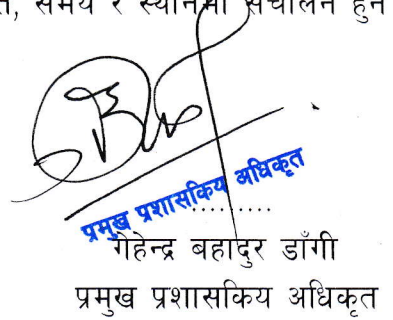 , समय र स्थानमा संचालन हुने
प्रमुख प्रशासकिय अधिकृत
.........
गेहेन्द्र बहादुर डाँगी
प्रमुख प्रशासकिय अधिकृत